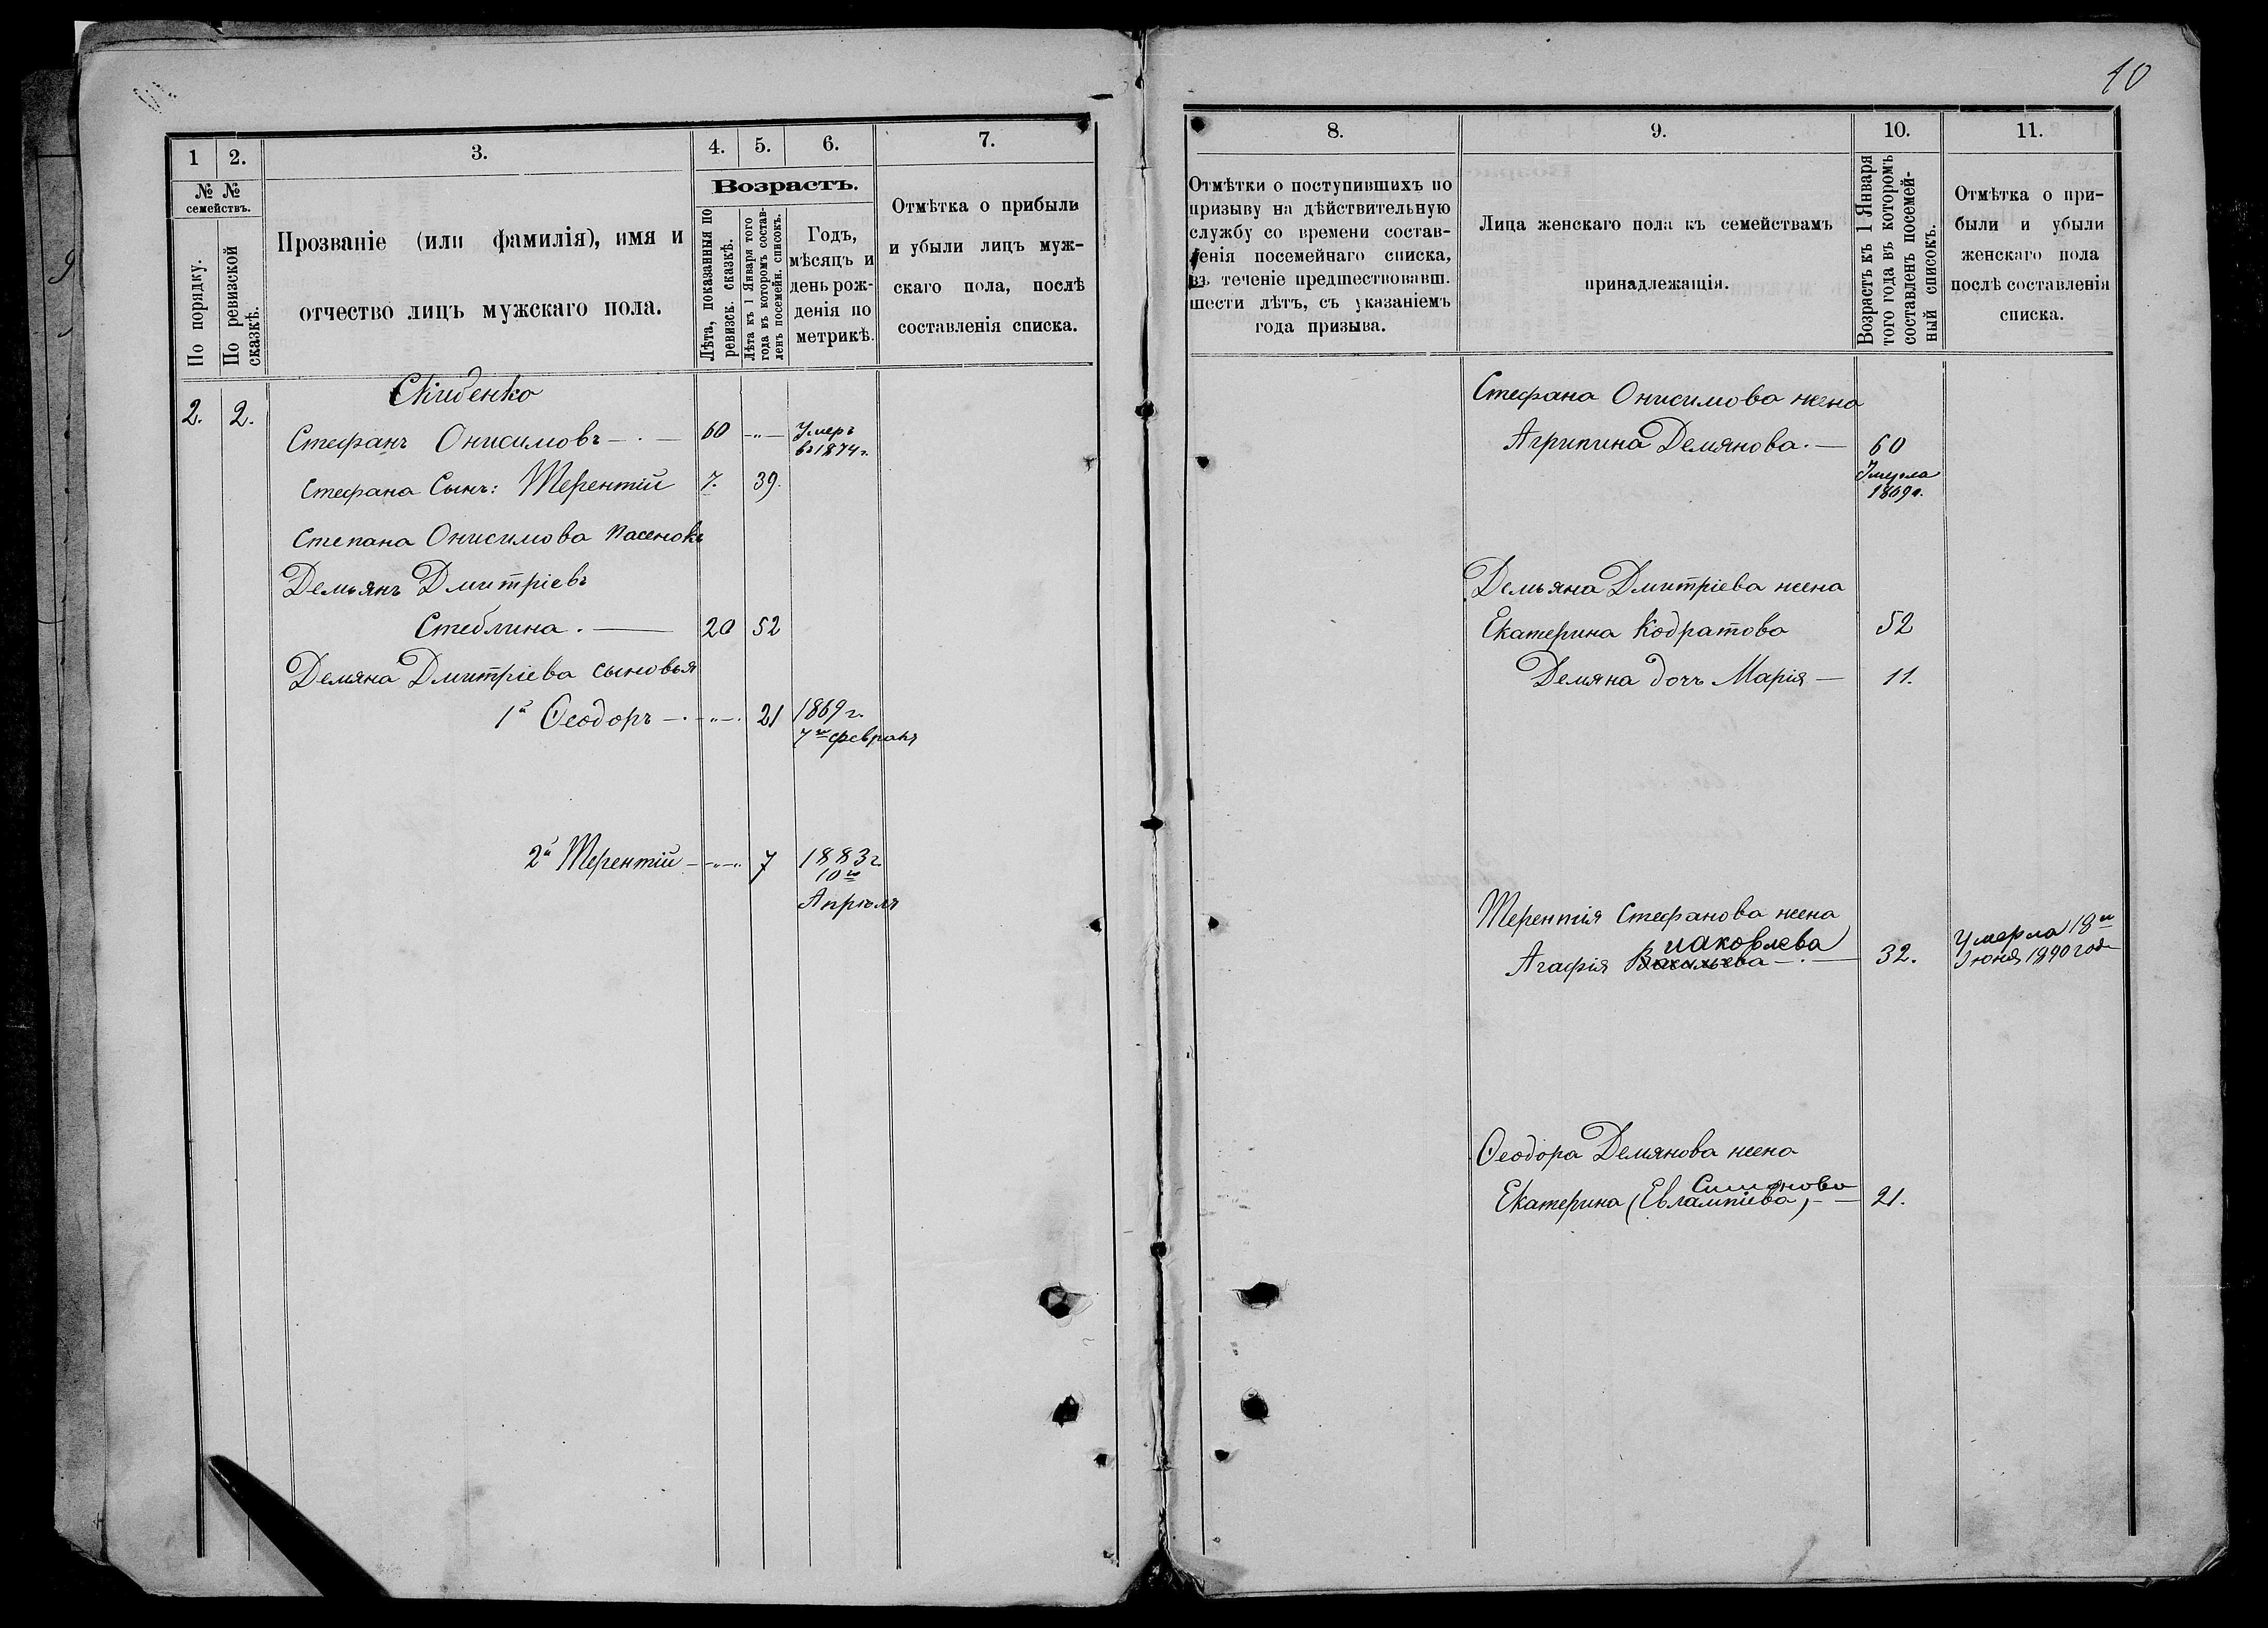 10
1
2.
3.
4.
5.
6.
7.
№ №
семействъ.
По порядку.
По ревизской
сказкѣ.
Прозваніе (или фамилія), имя и
отчество лицъ мужскаго пола.
Возрастъ.
Лѣта, показанныя по
ревизск. сказкѣ.
Лѣта къ 1 Января того
года въ которомъ состав-
ленъ посемейн. списокъ.
Годъ,
мѣсяцъ и
день рож-
денія по
метрикѣ.
Отмѣтка о прибыли
и убыли лицъ муж-
скаго пола, послѣ
составленія списка.
2. 2.
Стефанъ Онисимовъ 60 Умеръ
въ 1874 г.
Стефана Сынъ: Терентій 7. 39.
Степана Онисимова пасенокъ
Демьянъ Дмитріевъ
Стеблина. 20 52
Демяна Дмитріева сыновья
1й Ѳеодоръ 21 1869 г.
7го февраля
2й Терентій 7 1883 г
10го
Апрѣля
8.
9.
10.
11.
Отмѣтки о поступившихъ по
призыву на дѣйствительную
службу со времени состав-
ленія посемейнаго списка,
въ теченіе предшествовавш.
шести лѣтъ, съ указаніемъ
года призыва.
Лица женскаго пола къ семействамъ
принадлежащія.
Возрастъ къ 1 Января
того года въ которомъ
составленъ посемей-
ный списокъ.
Отмѣтка о при-
были и убыли
женскаго пола
послѣ составленія
списка.
Стефана Онисимова жена
Агрипина Демянова. 60
Умерла
1869 г.
Демьяна Дмитріева жена
Екатерина Кодратова 52
Демяна дочь Марія 11.
Терентія Стефанова жена
иаковлева
Агафія Васильева 32. Умерла 18го
Іюня 1890 года
Ѳеодора Демянова жена
Симонова
Екатерина (Евлампіева) 21.